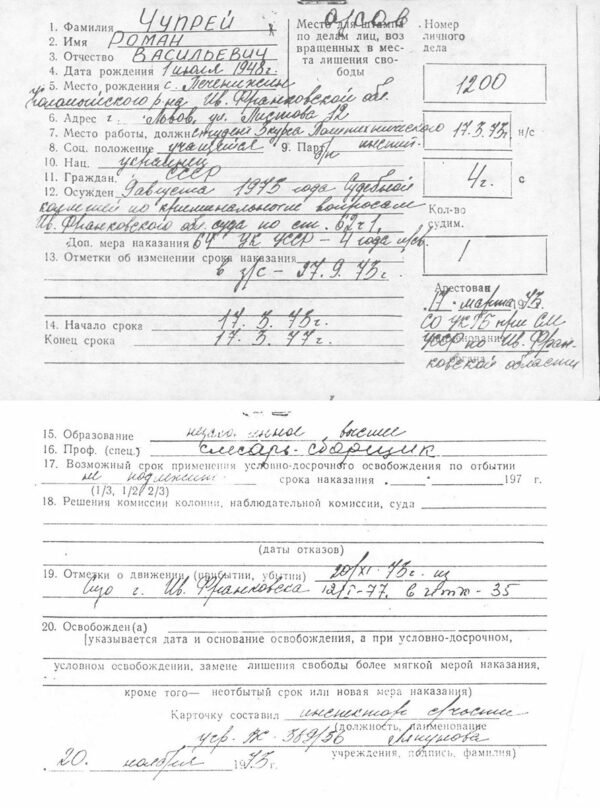 1. Фамилия ЧУПРЕЙ
2. Имя РОМАН
3. Отчество ВАСИЛЬЕВИЧ
4. Дата рождения 1 июля 1948г.
5. Место рождения с. Печенижин
Коломийского р-на Ив. Франковской обл.
6. Адрес г. Львов, ул. 12
7. Место работы, должн. студент 3 курса Политехнического
8. Соц. положение учащийся 9. Парт б/п
10. Нац. украинец
11. Граждан. СССР
12. Осужден 9 августа 1973 года Судебной
коллегией по вопросам
Ив. Франковского обл. суда по ст. 62 ч 1,
Доп. мера наказания 64 УК УССР – 4 года
13. Отметки об изменении срока наказания
в з/с – 27.9.73г.
14. Начало срока 17. 3. 73г.
Конец срока 17. 3. 77г.
Место для штампа
по делам лиц, воз
вращенных в мес-
та лишения сво-
боды
Номер
личного
дела
1200
17.3.73г. н/с
4г. с
Кол-во
судим.
1
Арестован
17 марта 1973г.
СО УКГБ при СМ
УССР по Ив. Фран-
ковской области
15. Образование высшее
16. Проф. (спец.) слесарь-сборщик
17. Возможный срок применения условно-досрочного освобождения по отбытии
не подлежит срока наказания 197 г.
(1/3, 1/2, 2/3)
18. Решения комиссии колонии, наблюдательной комиссии, суда
(даты отказов)
19. Отметки о движении (прибытии, убытии) 20/XI-73г. из
г. Ив. Франковска 12/I-77. в – 35
20. Освобожден(а)
[указывается дата и основание освобождения, а при условно-досрочном,
условном освобождении, замене лишения свободы более мягкой мерой наказания,
кроме того— неотбытый срок или новая мера наказания)
Карточку составил инспектор с/части
(должность, наименование
учр. ВС 389/36
учреждения, подпись, фамилия)
20. ноября 1973г.